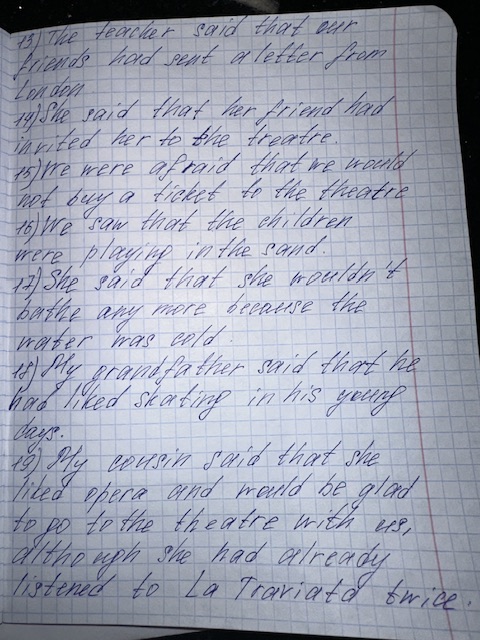 13) The teacher said that our
friends had sent a letter from
London
14) She said that her friend had
invited her to the treatre.
15) We were afraid that we would
not buy a ticket to the theatre
16) We saw that the children
were playing in the sand.
17) She said that she wouldn't
bathe any more because the
water was cold.
18) My grandfather said that he
had liked skating in his young
days.
19) My cousin said that she
liked opera and would be glad
to go to the theatre with us,
although she had already
listened to La Traviata twice.